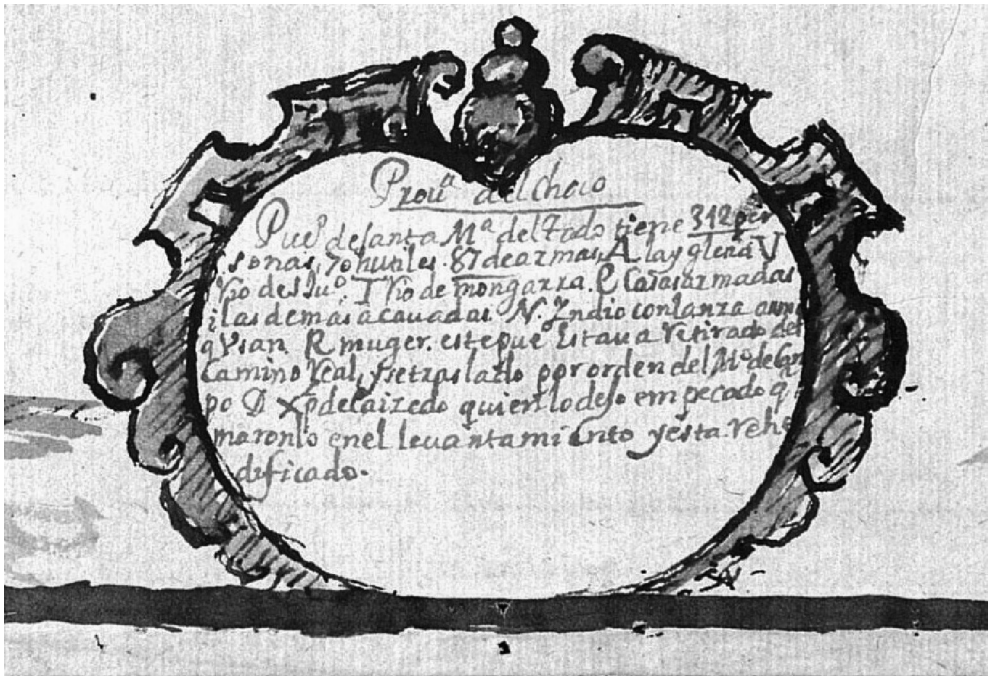 Prouᵃ del choco
Pueᵒ de santa Mᵃ del Tado tiene 312 per
sonas, 70 hutiles. 87 de armas, A la yglesia V
Rio de S Juᵒ. T Rio de mongarra. P Casas armadas
i las demas acavadas N. Indio con lanza arma
q Vsan R muger. este pueᵒ Estava retirado del
Camino Real, y se traslado por orden del Mᵒ de Cam
po D Xpᵒ de Caizedo quien lo dejo empeçado q
maronlo en el levantamiento y esta rehe
dificado.